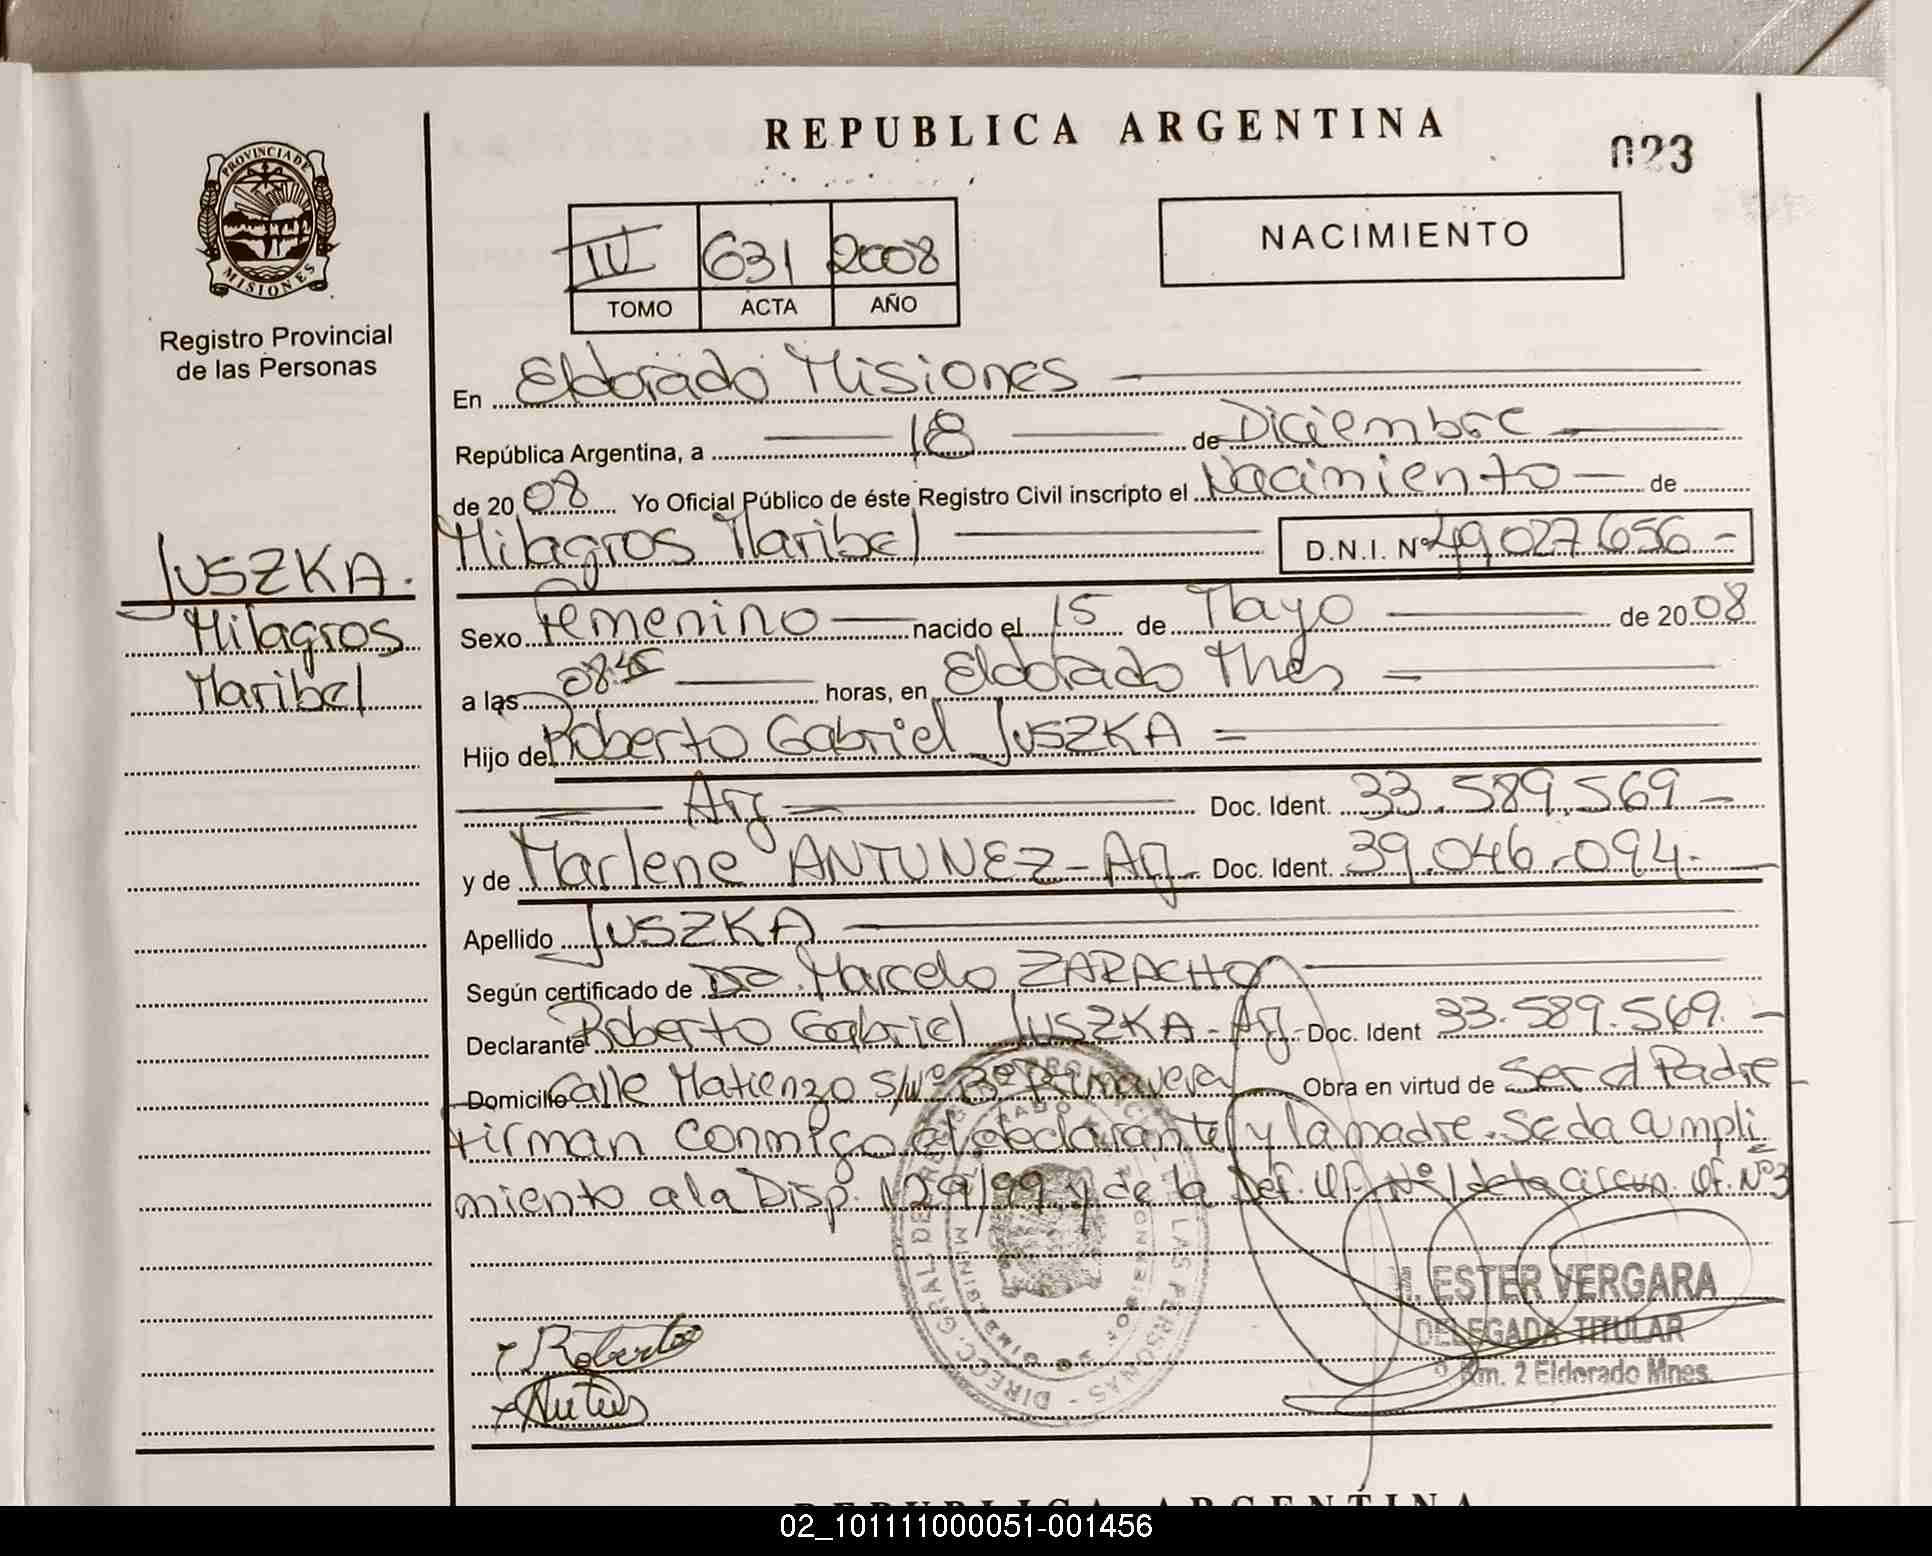 REPUBLICA ARGENTINA
023
PROVINCIA DE
MISIONES
Registro Provincial
de las Personas
III 631 2008
TOMO ACTA AÑO
NACIMIENTO
En Eldorado Misiones
República Argentina, a 18 de Diciembre
de 20 08 Yo Oficial Público de éste Registro Civil inscripto el Nacimiento de
Milagros Maribel D.N.I. Nº 49.027.656
JUSZKA.
Milagros
Maribel
Sexo Femenino nacido el 15 de Mayo de 20 08
a las 08:45 horas, en Eldorado Mnes
Hijo de Roberto Gabriel JUSZKA
Arg Doc. Ident. 33.589.569
y de Marlene ANTUNEZ - Arg Doc. Ident. 39.046.094.
Apellido JUSZKA
Según certificado de Dr. Marcelo ZARACHO
Declarante Roberto Gabriel JUSZKA - Arg Doc. Ident 33.589.569.
Domicilio Calle Matienzo S/Nº Bº Primavera Obra en virtud de Ser el Padre
Firman conmigo el declarante y la madre. Se da cumpli
miento a la Disp. 129/99 y de la Def. Of. Nº 1 de la Circun. Of. Nº3
M. ESTER VERGARA
DELEGADA TITULAR
Km. 2 Eldorado Mnes.
Roberto
DIRECC. GRAL. DE LAS PERSONAS
REPUBLICA ARGENTINA
02_101111000051-001456